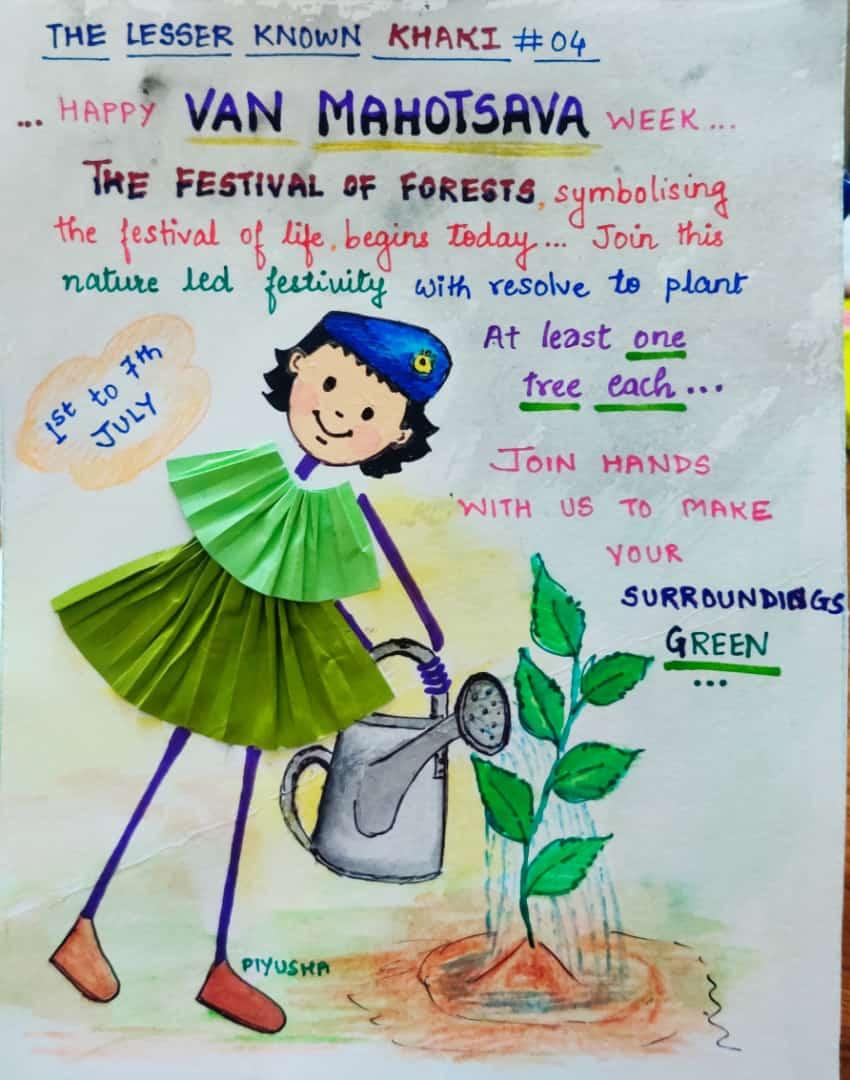 THE LESSER KNOWN KHAKI #04
... HAPPY VAN MAHOTSAVA WEEK...
THE FESTIVAL OF FORESTS, symbolising
the festival of life, begins today... Join this
nature led festivity with resolve to plant
At least one
tree each...
1st to 7th
JULY
JOIN HANDS
WITH US TO MAKE
YOUR
SURROUNDINGS
GREEN
...
PIYUSHA